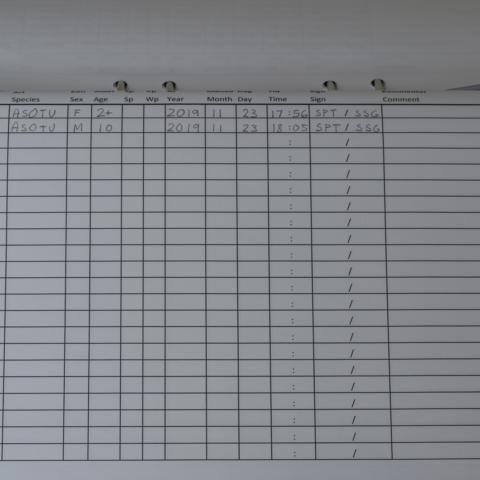 Species Sex Age Sp Wp Year Month Day Time Sign Comment
ASOTU F 2+ 2019 11 23 17:56 SPT / SSG
ASOTU M 10 2019 11 23 18:05 SPT / SSG
: /
: /
: /
: /
: /
: /
: /
: /
: /
: /
: /
: /
: /
: /
: /
: /
: /
: /
: /
: /